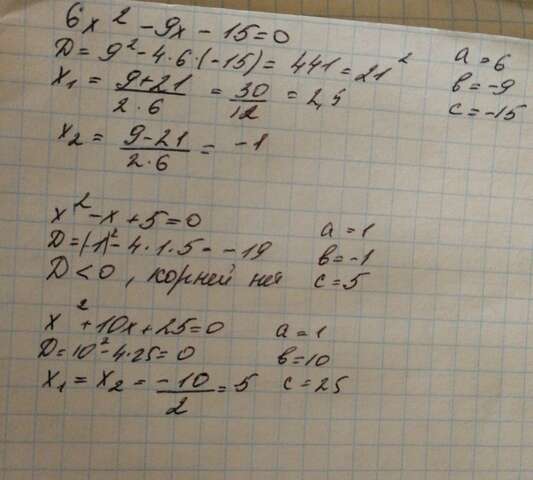 6x² - 9x - 15 = 0
D = 9² - 4·6·(-15) = 441 = 21²
a = 6
x₁ = (9+21)/(2·6) = 30/12 = 2,5
в = -9
c = -15
x₂ = (9-21)/(2·6) = -1
x² - x + 5 = 0
a = 1
D = (-1)² - 4·1·5 = -19
в = -1
D < 0, корней нет
c = 5
x² + 10x + 25 = 0
a = 1
D = 10² - 4·25 = 0
в = 10
x₁ = x₂ = -10/2 = 5
c = 25